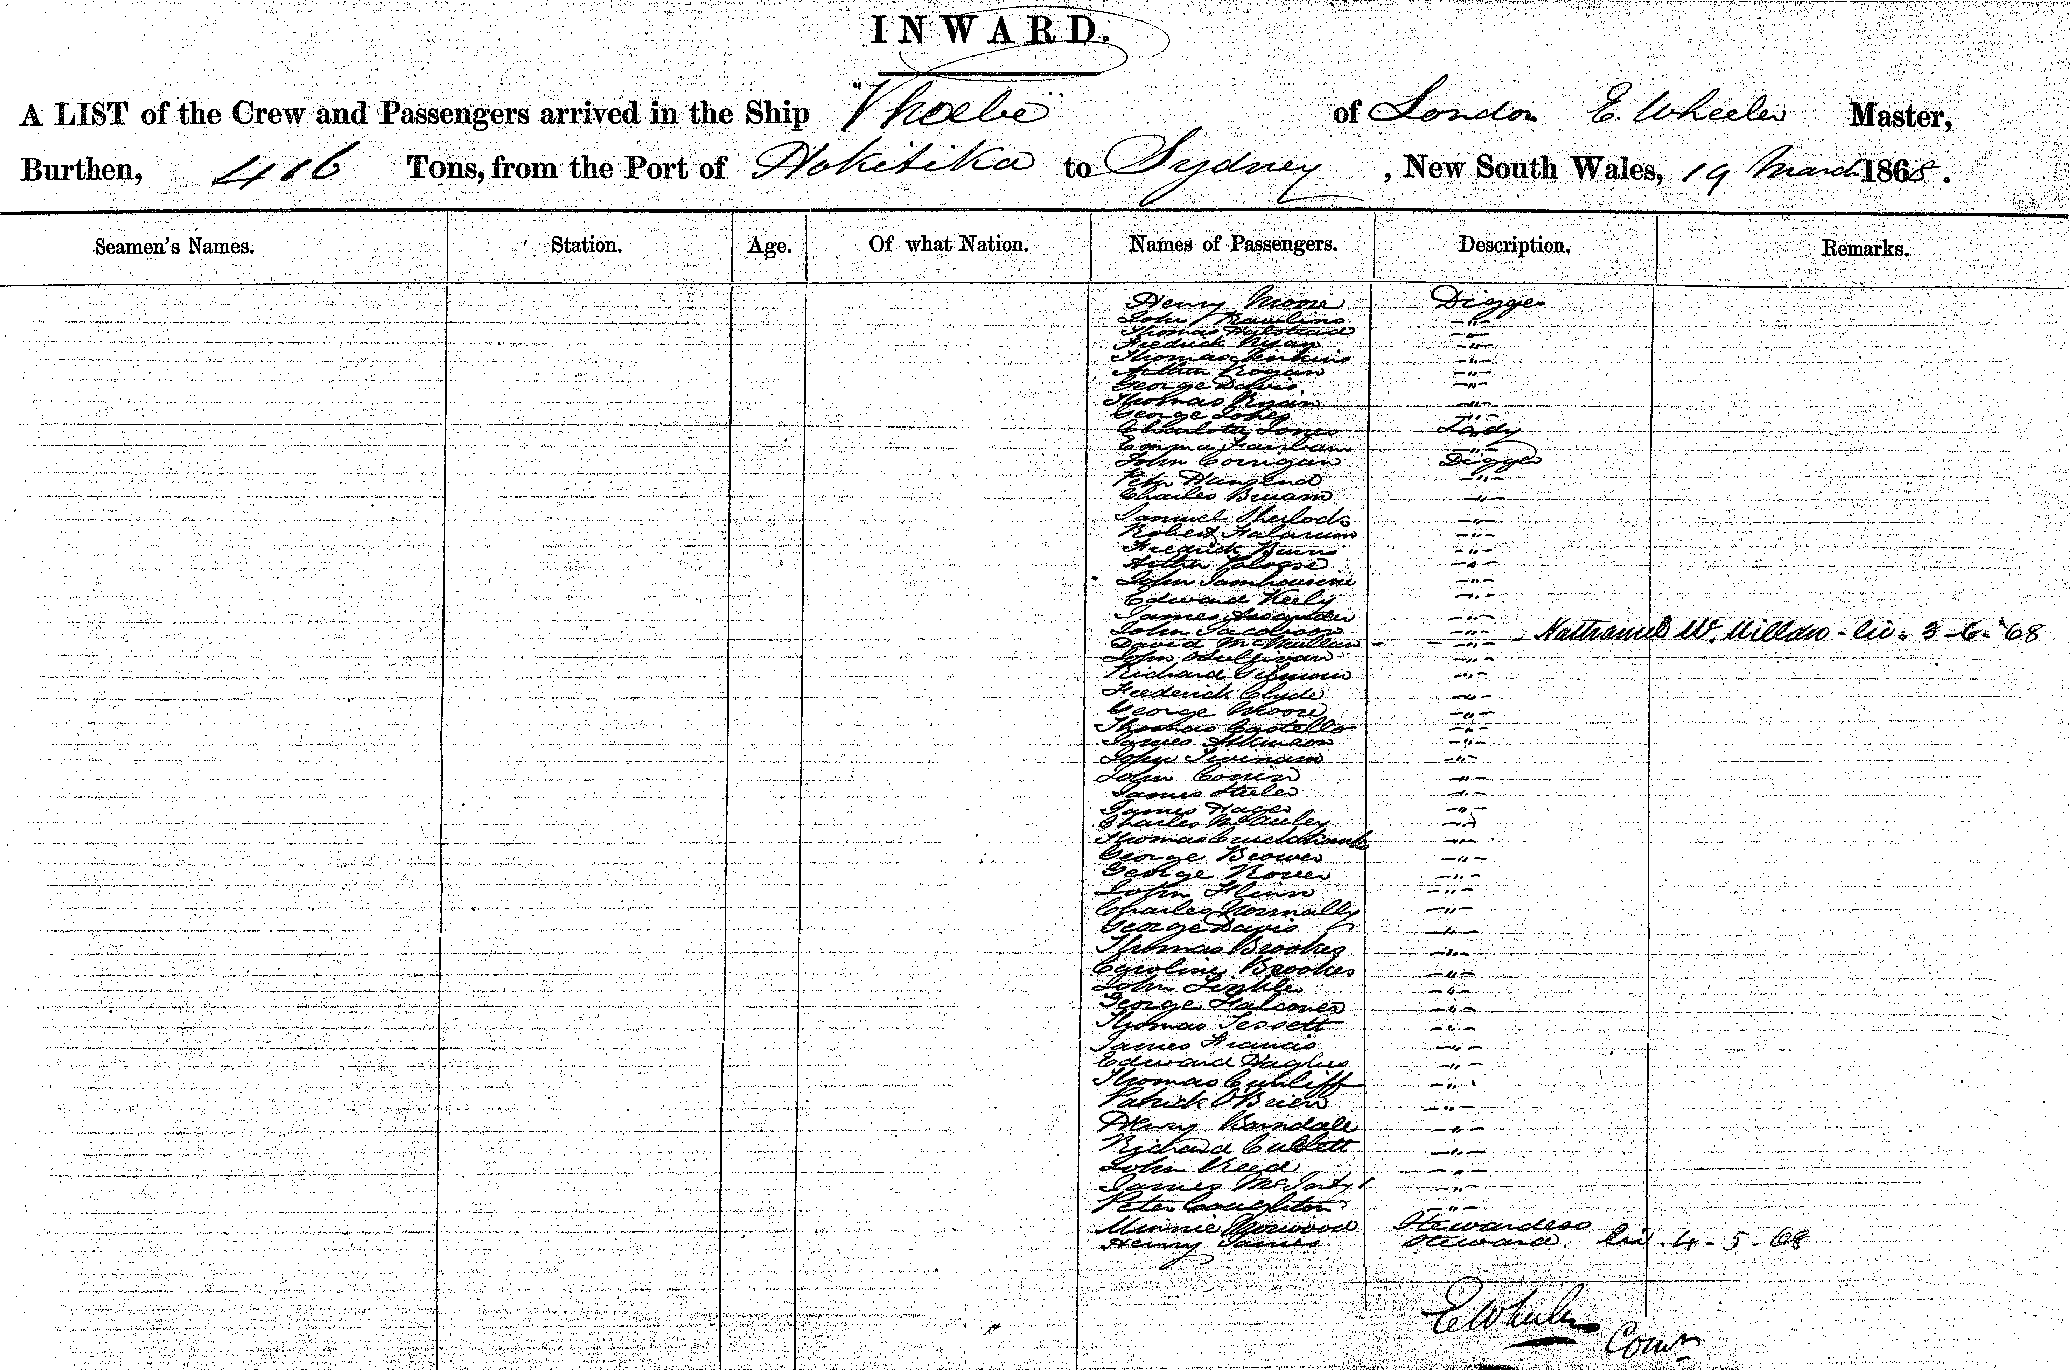 INWARD.
A LIST of the Crew and Passengers arrived in the Ship "Phoebe" of London E. Wheeler Master,
Burthen, 416 Tons, from the Port of Hokitika to Sydney, New South Wales, 19 March 1868.
Seamen's Names. Station. Age. Of what Nation. Names of Passengers. Description. Remarks.
Henry Moore Digger
John Rawlins -"-
Thomas -"-
Fredrick Ryan -"-
Thomas Jenkins -"-
Arthur -"-
George Davis -"-
Thomas Ryan -"-
George Jones -"-
Charlotte Jones Lady
Emma Fairbairn -"-
John Corrigan Digger
Peter -"-
Charles -"-
Samuel Sherlock -"-
Robert -"-
Fredrick Burns -"-
Arthur -"-
John Tambourine -"-
Edward Keely -"-
James -"-
John Jacobson -"- Nathaniel Mc. Millan - liv. 3-6-'68
David McMullan - -"-
John Sullivan -"-
Richard Gibson -"-
Frederick Clyde -"-
George Moore -"-
Thomas Costello -"-
James Atkinson -"-
John Twinam -"-
John -"-
James Steele -"-
James -"-
Charles McCauley -"-
Thomas Cruickshank -"-
George Brown -"-
George -"-
John Flinn -"-
Charles Normally -"-
George Davis -"-
Thomas Brookes -"-
Caroline Brookes -"-
John -"-
George Falconer -"-
Thomas Jessett -"-
James Francis -"-
Edward Hughes -"-
Thomas Cunliff -"-
Patrick O'Brien -"-
Henry -"-
Richard -"-
John Reed -"-
James McInty -"-
Peter Coughlan -"-
Minnie Norwood Stewardess
Henry James Steward. liv. 4-5-68
E Wheeler
Comr